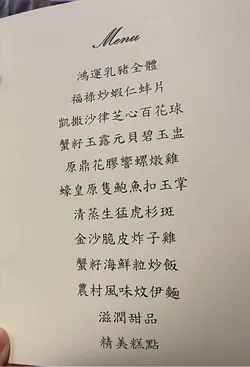 Menu
鴻運乳豬全體
福祿炒蝦仁蚌片
凱撒沙律芝心百花球
蟹籽玉露元貝碧玉盅
原鼎花膠響螺燉雞
蠔皇原隻鮑魚扣玉掌
清蒸生猛虎杉斑
金沙脆皮炸子雞
蟹籽海鮮粒炒飯
農村風味炆伊麵
滋潤甜品
精美糕點